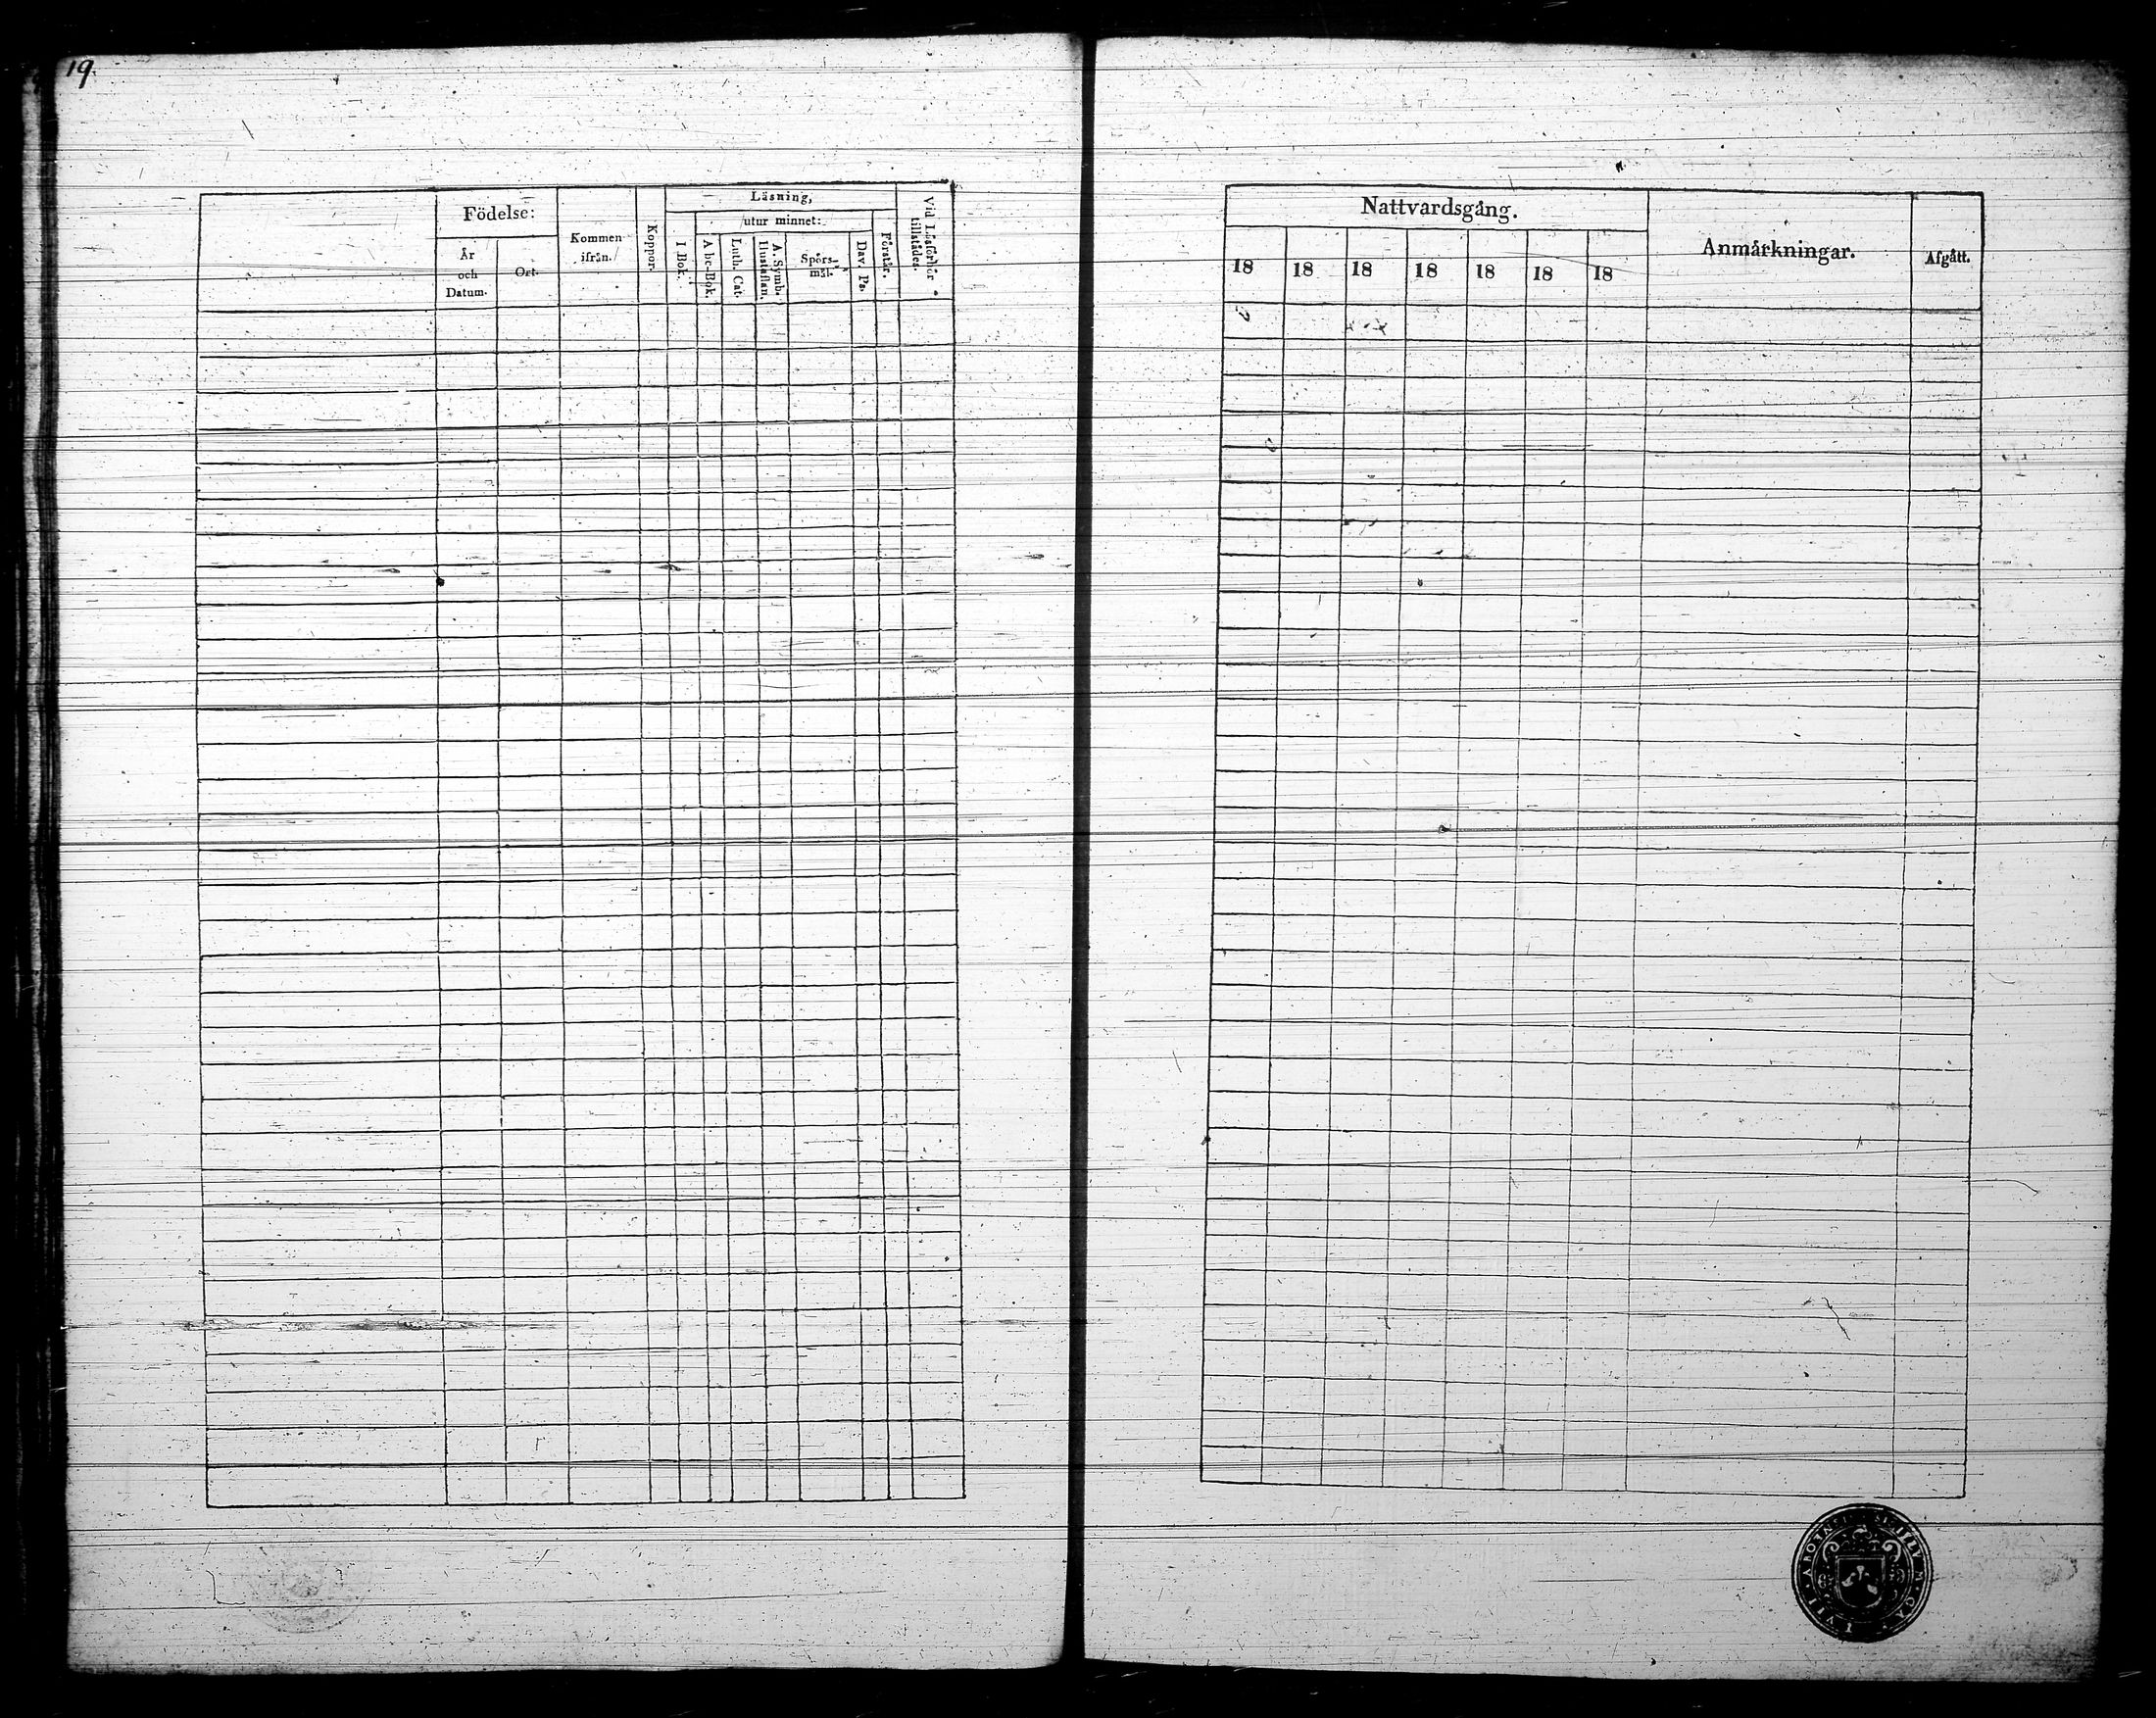 19.
Födelse:
År
och
Datum.
Ort.
Kommen
ifrån.
Koppor.
Läsning,
utur minnet:
I Bok.
Abc-Bok.
Luth. Cat.
A. Symb.
Hustaflan.
Spörs-
mål.
Dav. Ps.
Förstår.
Vid Läsförhör
tillstädes.
Nattvardsgång.
18 18 18 18 18 18 18
Anmärkningar.
Afgått.